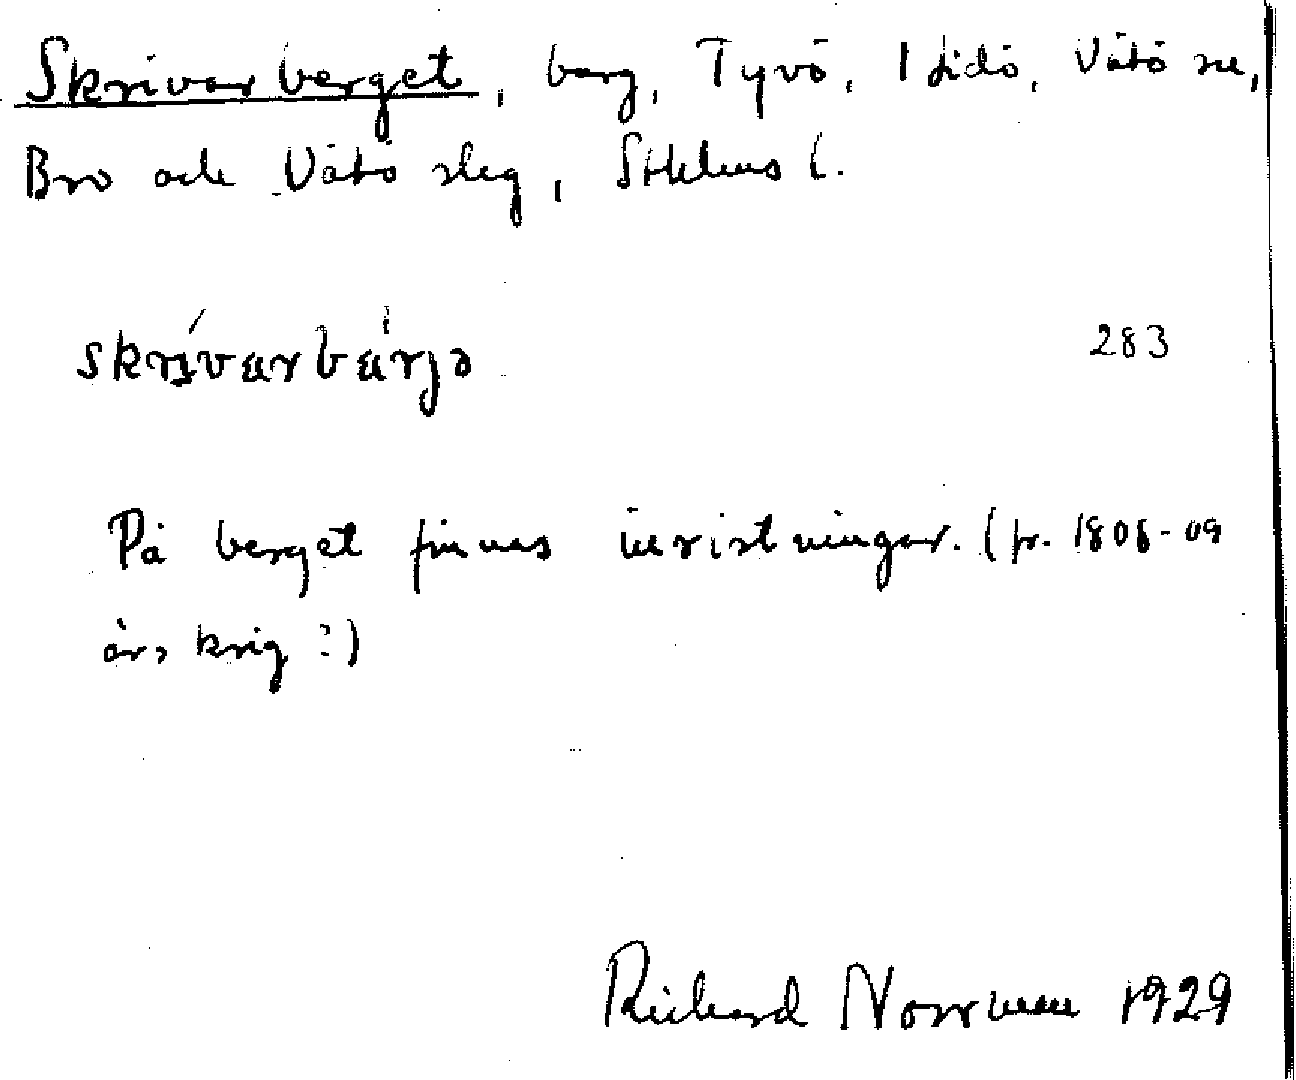 Skrivarberget, berg, Tyvö, Idö, Vätö sn,
Bro och Vätö slg, Sthlms l.
skrivarbärjə
283
På berget finnes inristningar. (fr. 1808-09
års krig?)
Richard Norrman 1929